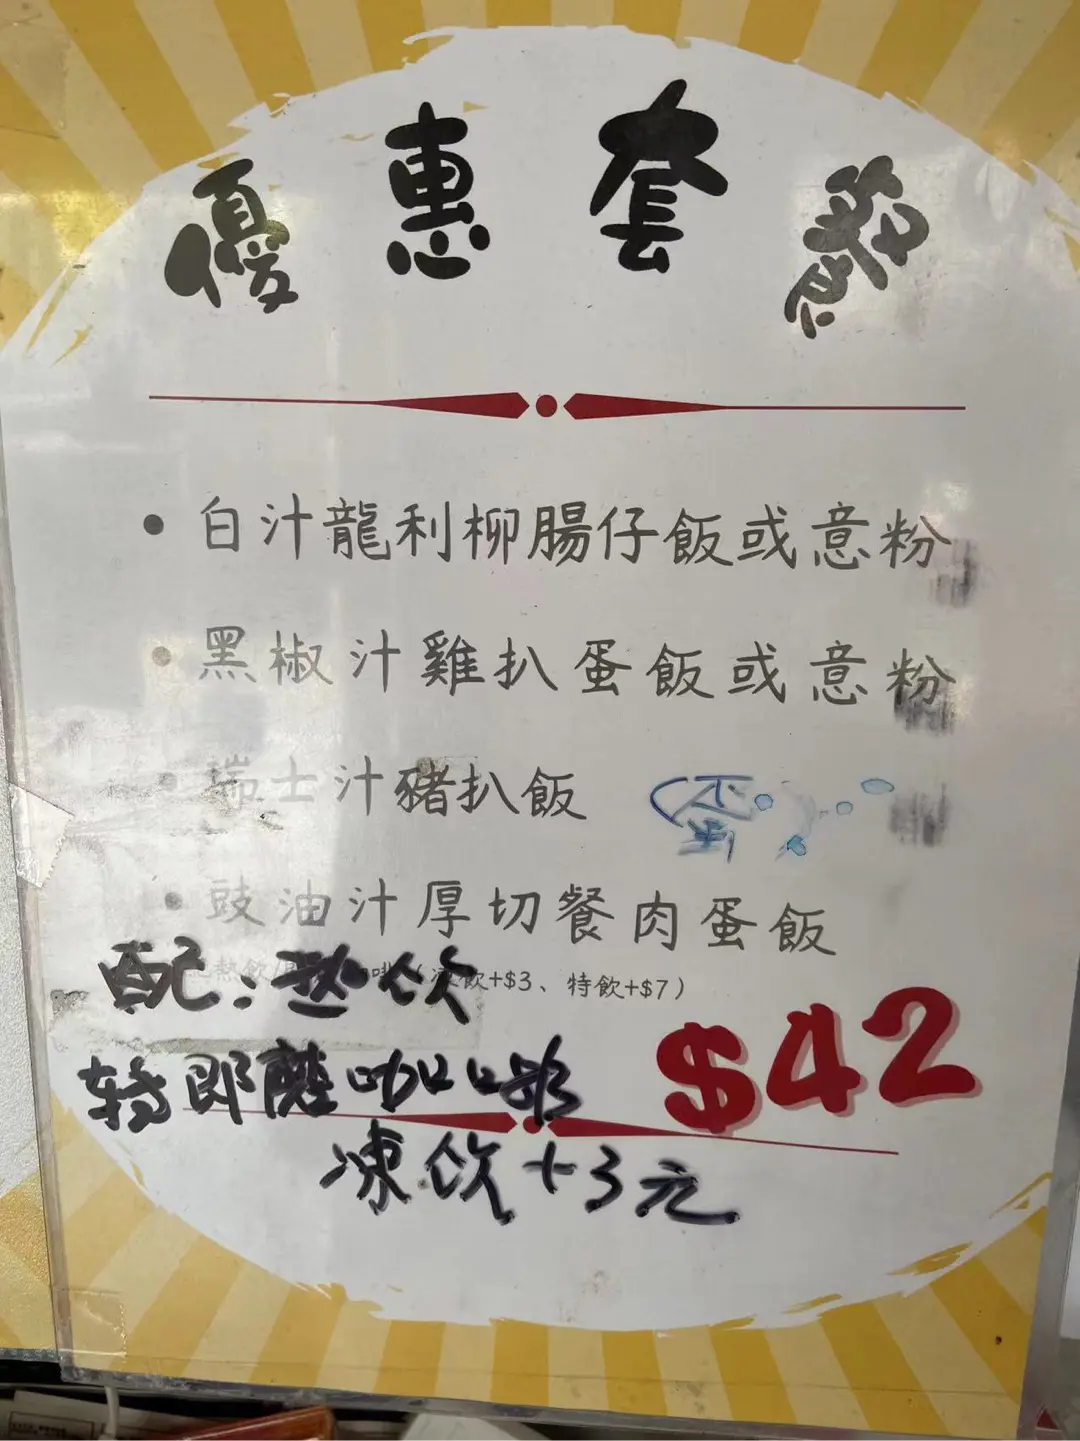 優惠套餐
• 白汁龍利柳腸仔飯或意粉
• 黑椒汁雞扒蛋飯或意粉
• 瑞士汁豬扒飯 蛋
• 豉油汁厚切餐肉蛋飯
熱飲 啡（凍飲+$3、特飲+$7）
配：热饮
转即磨咖啡
$42
凍饮+3元